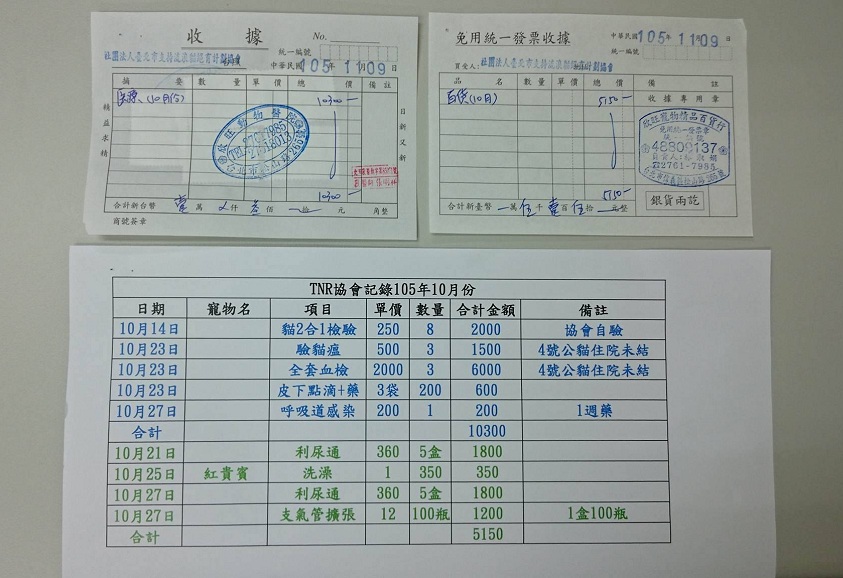 收 據
No.
統一編號
社團法人臺北市支持流浪貓絕育計劃協會
中華民國 105年 11月09日
摘 要 數 量 單 價 總 價 備 註
(10月份) 10300
精益求精
日新又新
欣旺動物醫院
10300
合計新台幣 壹萬 仟叁佰 拾 元 角整
商號簽章
免用統一發票收據
中華民國105年 11月09日
統一編號
買受人: 社團法人臺北市支持流浪貓絕育計劃協會
品 名 數 量 單 價 總 價 備 註
百貨(10月) 5150
收據專用章
欣旺寵物精品百貨行
免用統一發票章
48809137
2761-7985
5150
合計新臺幣 萬伍千壹百伍拾 元整
銀貨兩訖
TNR協會記錄105年10月份
日期 寵物名 項目 單價 數量 合計金額 備註
10月14日 貓2合1檢驗 250 8 2000 協會自驗
10月23日 驗貓瘟 500 3 1500 4號公貓住院未結
10月23日 全套血檢 2000 3 6000 4號公貓住院未結
10月23日 皮下點滴+藥 3袋 200 600
10月27日 呼吸道感染 200 1 200 1週藥
合計 10300
10月21日 利尿通 360 5盒 1800
10月25日 紅貴賓 洗澡 1 350 350
10月27日 利尿通 360 5盒 1800
10月27日 支氣管擴張 12 100瓶 1200 1盒100瓶
合計 5150